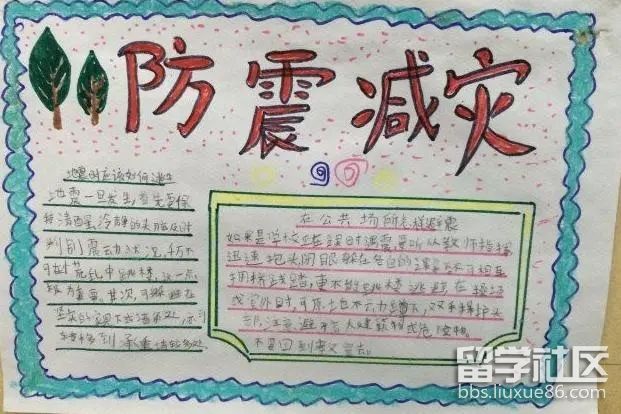 防震减灾
地震时应该如何逃生
地震一旦发生,首先要保
持清醒,冷静的头脑,及时
判别震动状况,千万不
可在慌乱中跳楼,这一点
极为重要,其次,可躲避在
坚实的家具下或墙角处,亦可
转移到承重墙较多处
在公共场所怎样避震
如果是学校在上课时遇震要听从教师指挥
迅速抱头闭眼躲在各自的课桌
拥挤践踏,更不能跳楼逃避在操场
或室外时,可原地不动蹲下,双手保护头
部,注意避开高大建筑物或危险物。
不要回到教室去。
留学社区
bbs.liuxue86.com